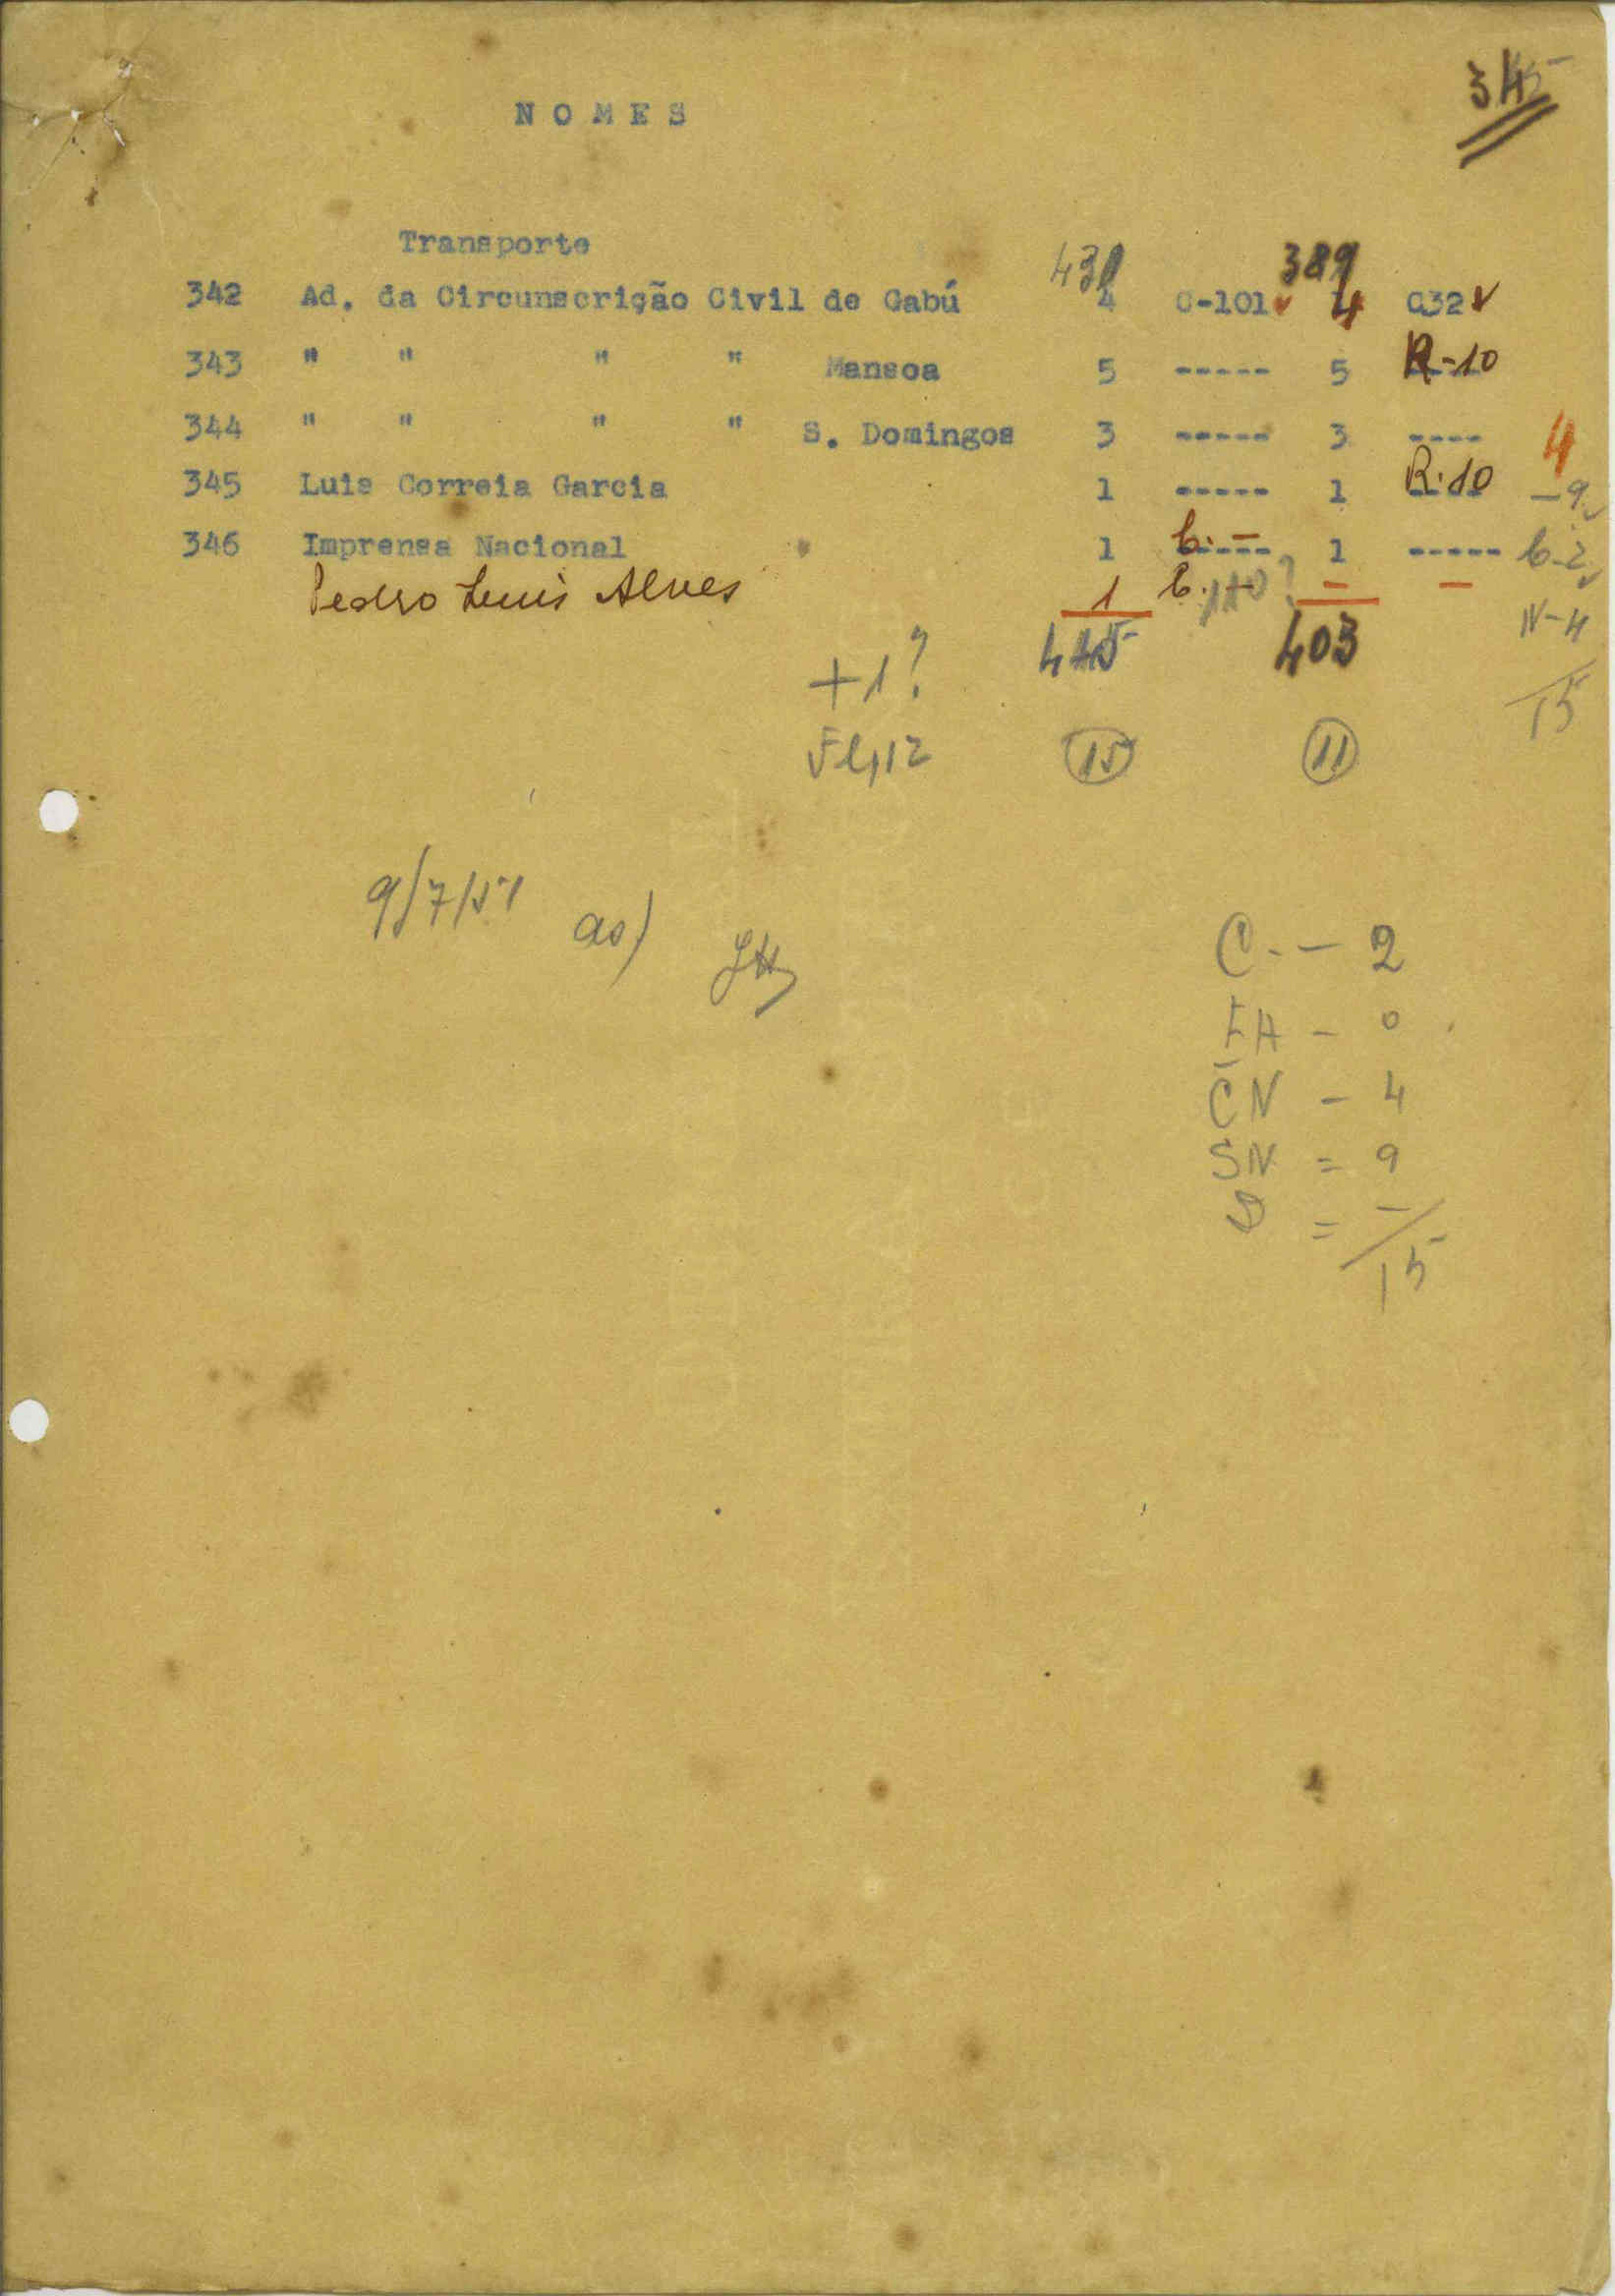 345
N O M E S
Transporte 430 389
342 Ad. da Circunscrição Civil de Gabú 4 C-101 4 C32
343 " " " " Mansoa 5 ----- 5 R-10
344 " " " " S. Domingos 3 ----- 3 ---- 4
345 Luis Correia Garcia 1 ----- 1 R.10 - 9
346 Imprensa Nacional 1 ----- 1 ----- C-2
Pedro Luis Alves 1 - -
N-4
445 403
+1?
15
15 11
9/7/51 as)
C. - 2
- 0
CN - 4
SN = 9
= -
15